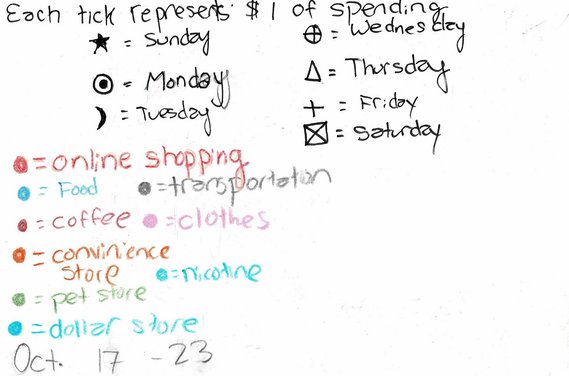 Each tick represents $1 of spending
★ = Sunday
= Monday
= Tuesday
⊕ = Wednesday
△ = Thursday
+ = Friday
= Saturday
= online shopping
= Food = transportation
= coffee = clothes
= convinience
store = nicotine
= pet store
= dollar store
Oct. 17 - 23